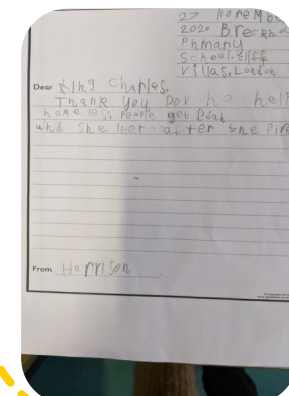 27 Novemb
2020 Breckn
Primary
School. Cliff
Villas, London
Dear King Charles.
Thank you for help
homeless people get food
and shelter after the fire
From Harrison